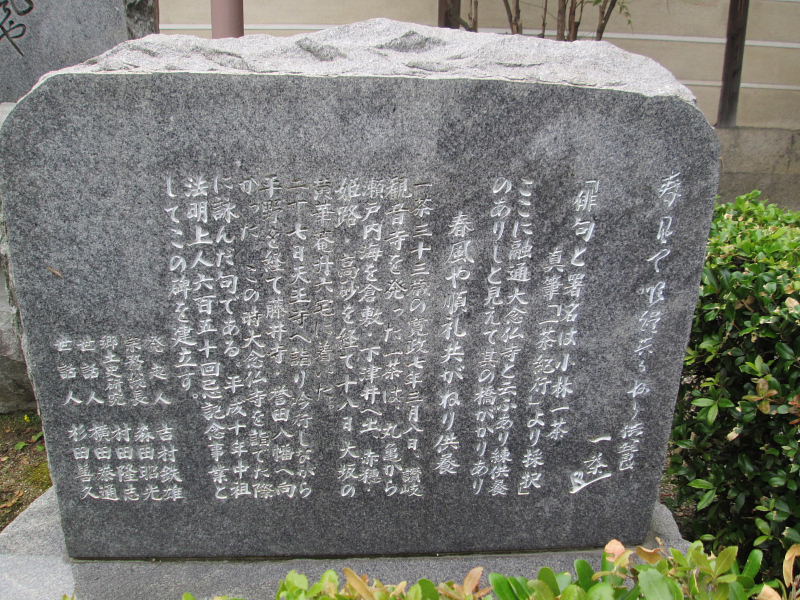 春風や順礼共がねり供養
一茶
「俳句と署名は小林一茶
真筆「一茶紀行」より採択」
ここに融通大念仏寺と云ふあり練供養
のありしと見えて其の橋がかりあり
春風や順礼共がねり供養
一茶三十三歳の寛政七年三月八日 讃岐
観音寺を発った一茶は、丸亀から
瀬戸内海を倉敷、下津井へ出 赤穂・
姫路・高砂を経て十八日 大坂の
二十七日天王寺へ詣り吟行しながら
平野を経て藤井寺 誉田八幡へ向
かった。この時大念仏寺を詣でた際
に詠んだ句である。平成十年中祖
法明上人六百五十回忌記念事業と
してこの碑を建立す。
発起人 吉村鉄雄
宗務総長 森田昭光
郷土史研究 村田隆志
世話人 横田恭通
世話人 杉田善久
や